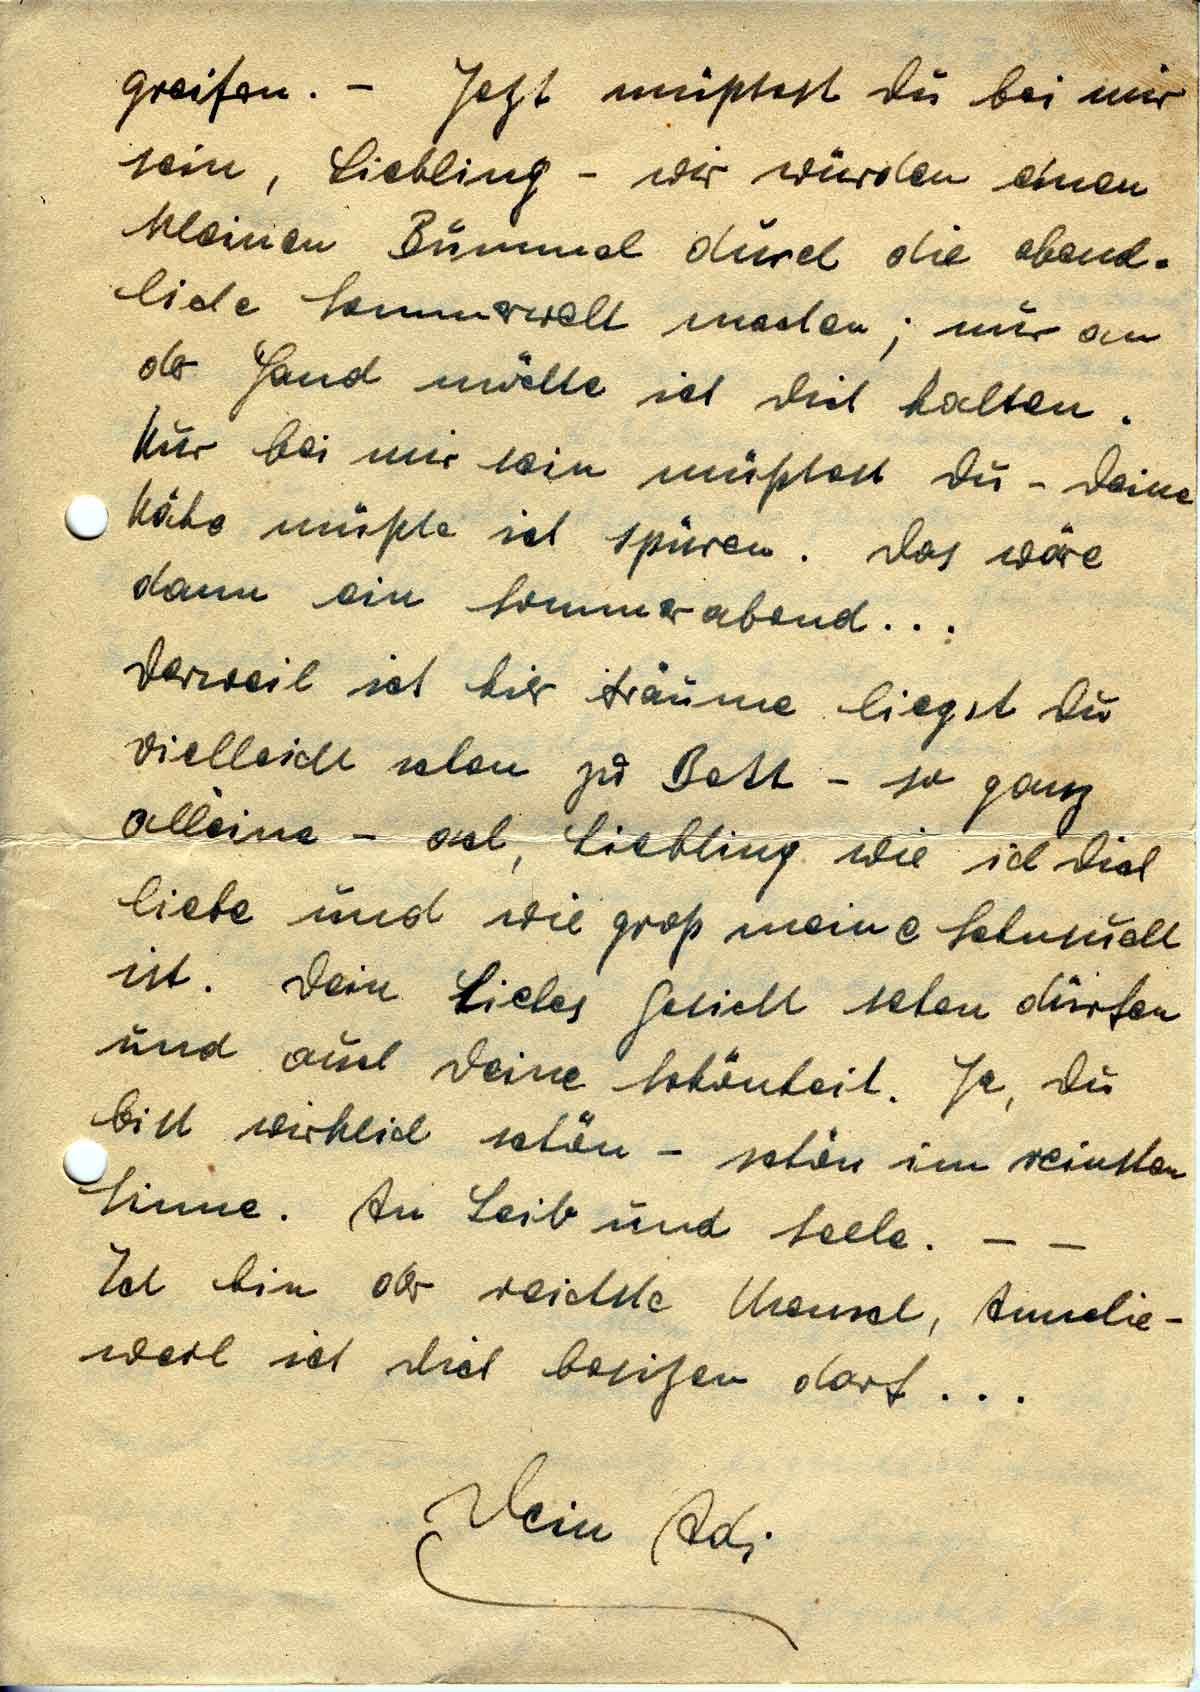 greifen. – Jetzt müßtest Du bei mir
sein, Liebling – wir würden einen
kleinen Bummel durch die abend-
liche Sommerwelt machen; nur an
der Hand möchte ich Dich halten.
Nur bei mir sein müßtest Du – Deine
Nähe müßte ich spüren. Das wäre
dann ein Sommerabend...
Derweil ich hier träume liegst Du
vielleicht schon zu Bett – so ganz
alleine – ach, Liebling wie ich Dich
liebe und wie groß meine Sehnsucht
ist. Dein Liebes Gesicht sehen dürfen
und auch Deine Schönheit. Ja, Du
bist wirklich schön – schön im reinsten
Sinne. An Leib und Seele. – –
Ich bin der reichste Mensch, Annelie –
weil ich Dich besitzen darf...
Dein Adi